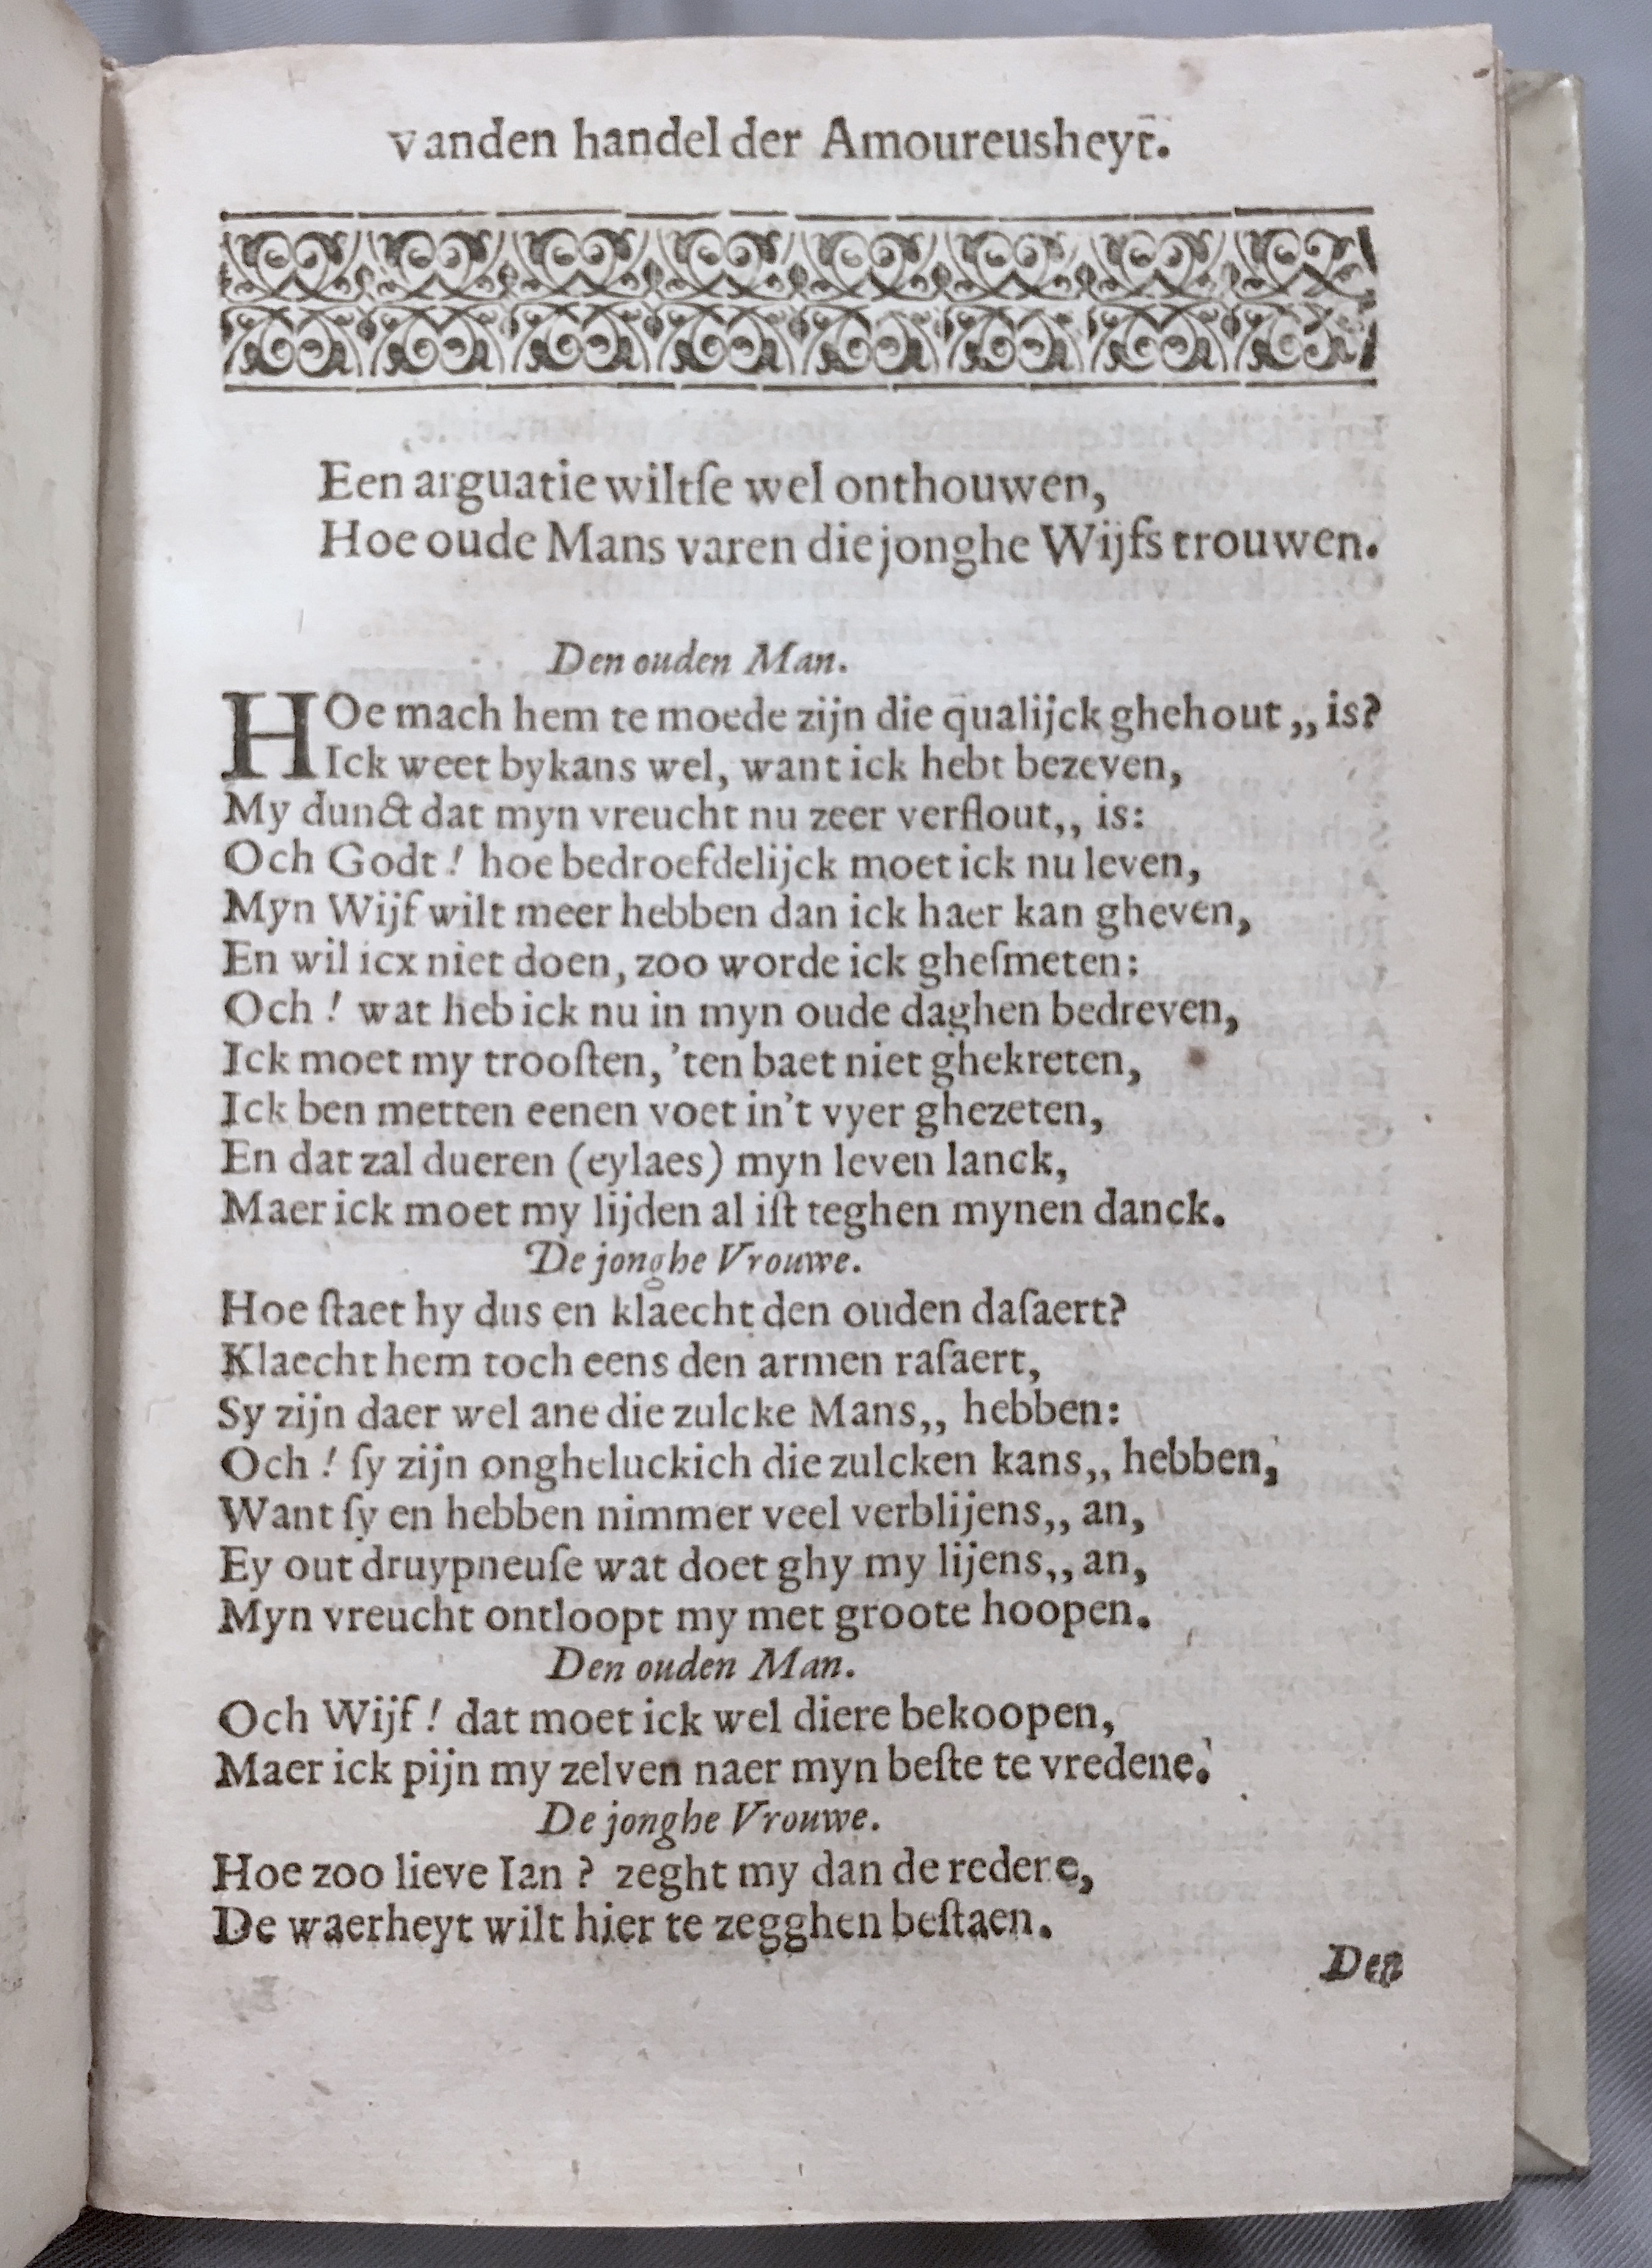 vanden handel der Amoureusheyt.
Een arguatie wiltſe wel onthouwen,
Hoe oude Mans varen die jonghe Wijfs trouwen.
Den ouden Man.
HOe mach hem te moede zijn die qualijck ghehout,, is?
Ick weet bykans wel, want ick hebt bezeven,
My dunct dat myn vreucht nu zeer verflout,, is:
Och Godt! hoe bedroefdelijck moet ick nu leven,
Myn Wijf wilt meer hebben dan ick haer kan gheven,
En wil icx niet doen, zoo worde ick gheſmeten:
Och! wat heb ick nu in myn oude daghen bedreven,
Ick moet my trooſten, 'ten baet niet ghekreten,
Ick ben metten eenen voet in't vyer ghezeten,
En dat zal dueren (eylaes) myn leven lanck,
Maer ick moet my lijden al iſt teghen mynen danck.
De jonghe Vrouwe.
Hoe ſtaet hy dus en klaecht den ouden daſaert?
Klaecht hem toch eens den armen raſaert,
Sy zijn daer wel ane die zulcke Mans,, hebben:
Och! ſy zijn ongheluckich die zulcken kans,, hebben,
Want ſy en hebben nimmer veel verblijens,, an,
Ey out druypneuſe wat doet ghy my lijens,, an,
Myn vreucht ontloopt my met groote hoopen.
Den ouden Man.
Och Wijf! dat moet ick wel diere bekoopen,
Maer ick pijn my zelven naer myn beſte te vredene.
De jonghe Vrouwe.
Hoe zoo lieve Ian? zeght my dan de redene,
De waerheyt wilt hier te zegghen beſtaen.
Den